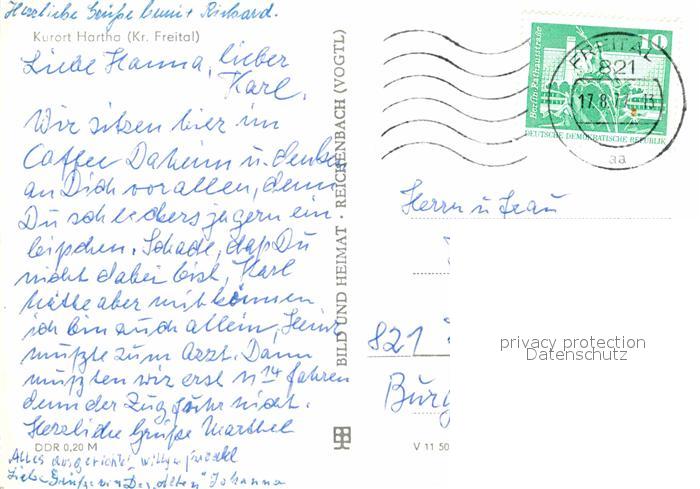 Herzliebe Grüße Richard.
Kurort Hartha (Kr. Freital)
Liebe Hanna, lieber
Karl.
Wir sitzen hier im
Caffee Daheim u. denken
an Dich vor allen, denn
Du schleckers ja gern ein
Schade, daß Du
nicht dabei bist, Karl
hätte aber mitkönnen
ich bin auch allein, Heinz
mußte zum Arzt. Dann
mußten wir erst 14 fahren
denn der Zug fährt nicht.
Herzliche Grüße
DDR 0,20 M
Alles ausgerichtet,
Liebe Grüße Johanna
BILD UND HEIMAT · REICHENBACH (VOGTL)
V 11 50
10
Berlin, Rathausstraße
DEUTSCHE DEMOKRATISCHE REPUBLIK
FREITAL
821
17.8.77-13
aa
Herrn u Frau
821
Burg
privacy protection
Datenschutz